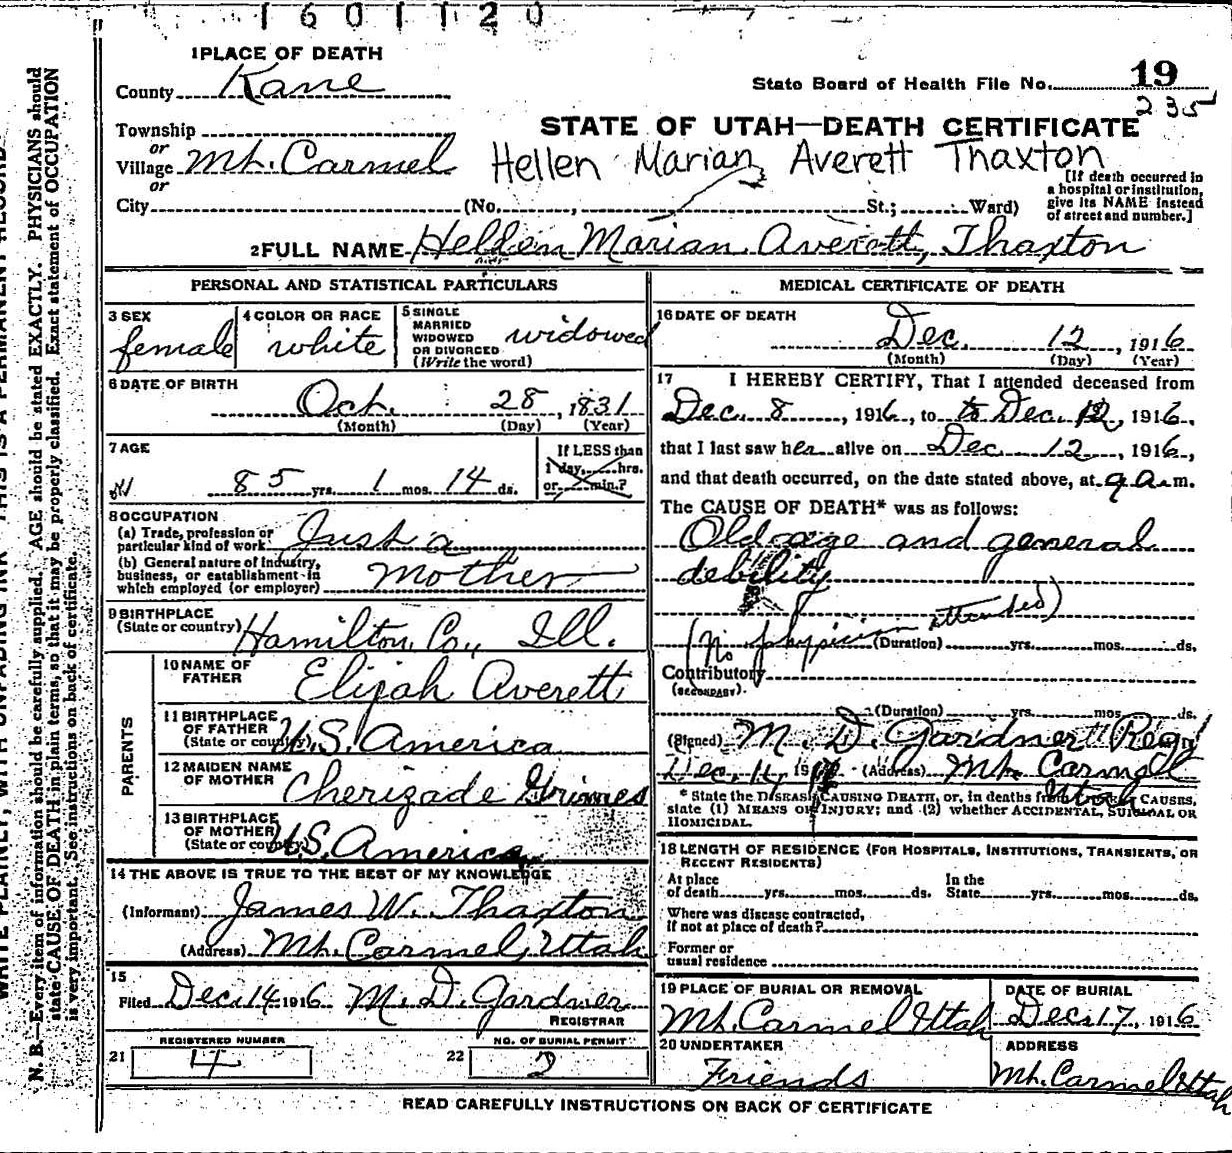 1601120
1 PLACE OF DEATH
County Kane
State Board of Health File No. 19
235
Township
or
Village Mt. Carmel
or
City (No. , St.; Ward)
STATE OF UTAH—DEATH CERTIFICATE
Hellen Marian Averett Thaxton
[If death occurred in
a hospital or institution,
give its NAME instead
of street and number.]
2 FULL NAME Hellen Marian Averett, Thaxton
PERSONAL AND STATISTICAL PARTICULARS
3 SEX
female
4 COLOR OR RACE
white
5 SINGLE
MARRIED
WIDOWED
OR DIVORCED
(Write the word)
widowed
6 DATE OF BIRTH
Oct. 28, 1831
(Month) (Day) (Year)
7 AGE
85 yrs. 1 mos. 14 ds.
If LESS than
1 day, hrs.
or min.?
8 OCCUPATION
(a) Trade, profession or
particular kind of work Just a
(b) General nature of Industry,
business, or establishment in
which employed (or employer) Mother
9 BIRTHPLACE
(State or country) Hamilton, Co., Ill.
PARENTS
10 NAME OF
FATHER
Elijah Averett
11 BIRTHPLACE
OF FATHER
(State or country) U.S. America
12 MAIDEN NAME
OF MOTHER
Cherizade Grimes
13 BIRTHPLACE
OF MOTHER
(State or country) U.S. America
14 THE ABOVE IS TRUE TO THE BEST OF MY KNOWLEDGE
(Informant) James W. Thaxton
(Address) Mt. Carmel, Utah
15
Filed Dec. 14 1916 M. D. Gardner
REGISTRAR
21 REGISTERED NUMBER
4
22 NO. OF BURIAL PERMIT
2
MEDICAL CERTIFICATE OF DEATH
16 DATE OF DEATH
Dec. 12, 1916
(Month) (Day) (Year)
17 I HEREBY CERTIFY, That I attended deceased from
Dec. 8, 1916, to to Dec. 12, 1916,
that I last saw her alive on Dec. 12, 1916,
and that death occurred, on the date stated above, at 9 a.m.
The CAUSE OF DEATH* was as follows:
Old age and general
debility
(No physician attended)
(Duration) yrs. mos. ds.
Contributory
(SECONDARY)
(Duration) yrs. mos. ds.
(Signed) M. D. Gardner Reg.
Dec. 14, 19 (Address) Mt. Carmel
Utah
* State the DISEASE CAUSING DEATH, or, in deaths from CAUSES,
state (1) MEANS OF INJURY; and (2) whether ACCIDENTAL, SUICIDAL OR
HOMICIDAL.
18 LENGTH OF RESIDENCE (FOR HOSPITALS, INSTITUTIONS, TRANSIENTS, OR
RECENT RESIDENTS)
At place
of death yrs. mos. ds.
In the
State yrs. mos. ds.
Where was disease contracted,
if not at place of death?
Former or
usual residence
19 PLACE OF BURIAL OR REMOVAL
Mt. Carmel Utah
DATE OF BURIAL
Dec. 17, 1916
20 UNDERTAKER
Friends
ADDRESS
Mt. Carmel Utah
READ CAREFULLY INSTRUCTIONS ON BACK OF CERTIFICATE
WRITE PLAINLY, WITH UNFADING INK THIS IS A PERMANENT RECORD
N. B.—Every item of information should be carefully supplied. AGE should be stated EXACTLY. PHYSICIANS should
state CAUSE OF DEATH in plain terms, so that it may be properly classified. Exact statement of OCCUPATION
is very important. See instructions on back of certificate.